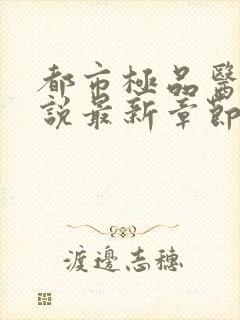 都市極品醫
說最新章節
渡邊志穗